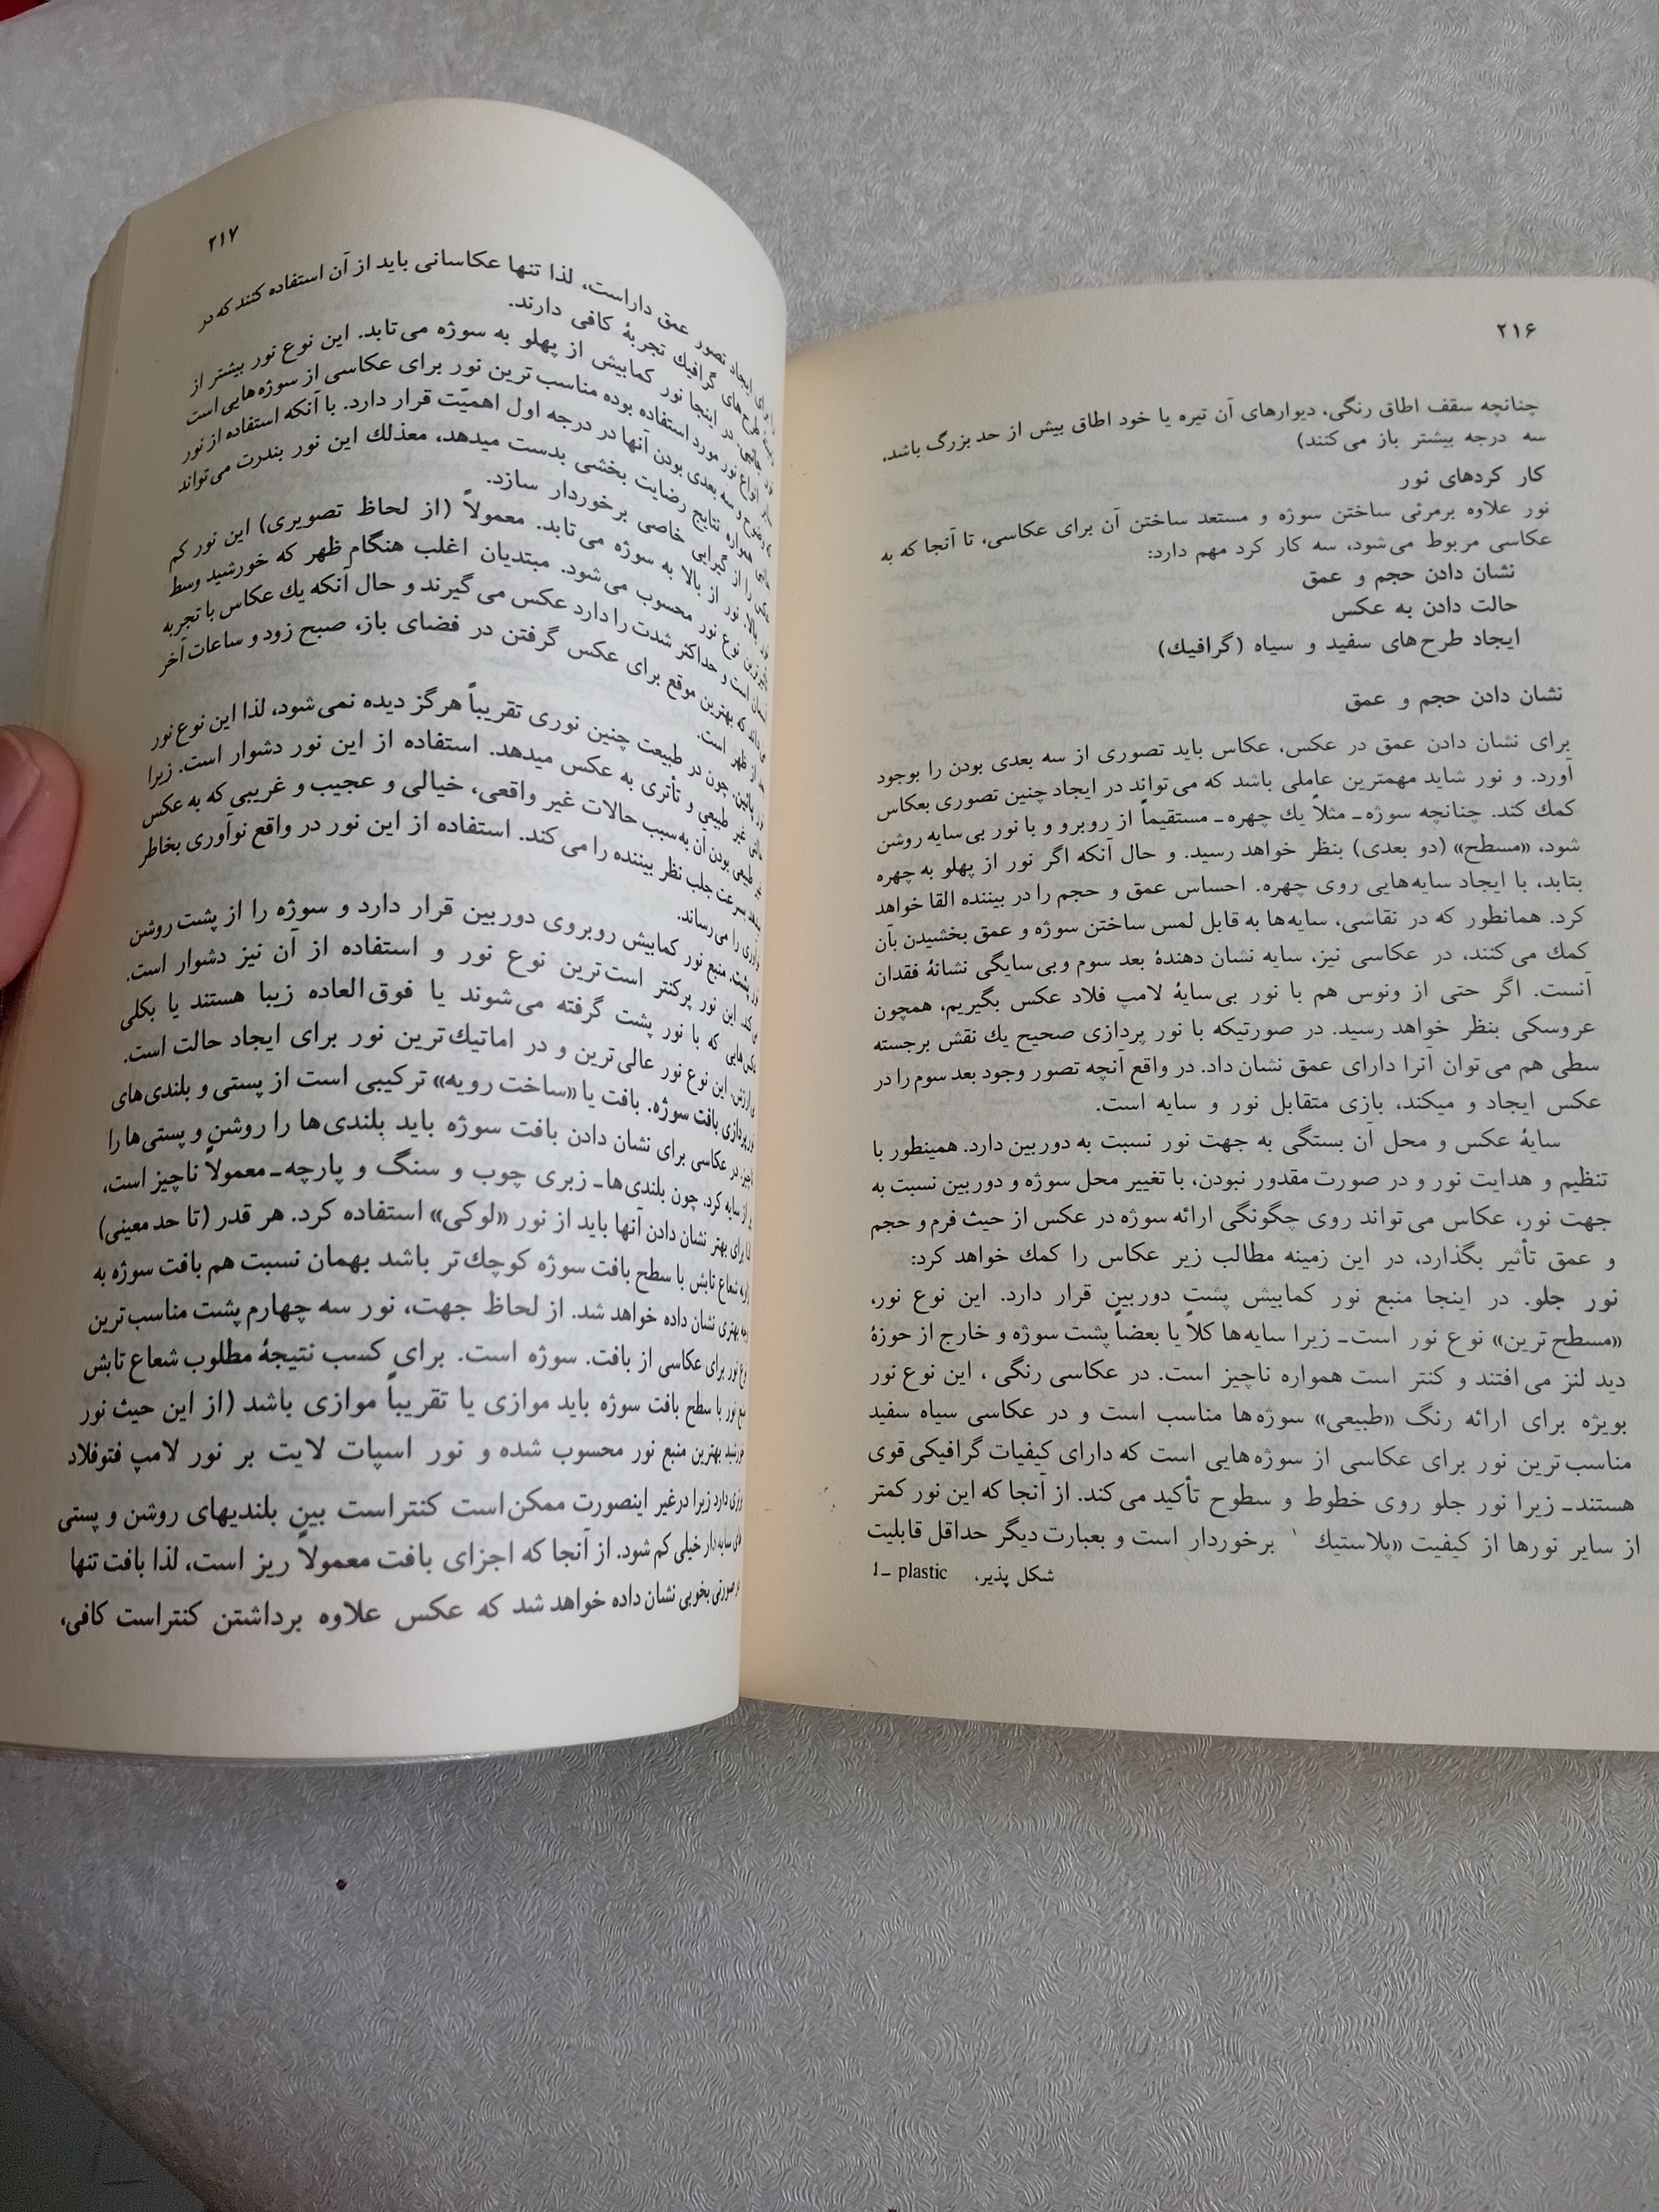 ۲۱۶
چنانچه سقف اطاق رنگی، دیوارهای آن تیره یا خود اطاق بیش از حد بزرگ باشد،
سه درجه بیشتر باز می‌کنند)
کار کردهای نور
نور علاوه برمرئی ساختن سوژه و مستعد ساختن آن برای عکاسی، تا آنجا که به
عکاسی مربوط می‌شود، سه کار کرد مهم دارد:
نشان دادن حجم و عمق
حالت دادن به عکس
ایجاد طرح‌های سفید و سیاه (گرافیك)
نشان دادن حجم و عمق
برای نشان دادن عمق در عکس، عکاس باید تصوری از سه بعدی بودن را بوجود
آورد. و نور شاید مهمترین عاملی باشد که می‌تواند در ایجاد چنین تصوری بعکاس
کمك کند. چنانچه سوژه ـ مثلاً یك چهره ـ مستقیماً از روبرو و با نور بی‌سایه روشن
شود، «مسطح» (دو بعدی) بنظر خواهد رسید. و حال آنکه اگر نور از پهلو به چهره
بتابد، با ایجاد سایه‌هایی روی چهره. احساس عمق و حجم را در بیننده القا خواهد
کرد. همانطور که در نقاشی، سایه‌ها به قابل لمس ساختن سوژه و عمق بخشیدن بآن
کمك می‌کنند، در عکاسی نیز، سایه نشان دهندهٔ بعد سوم وبی‌سایگی نشانهٔ فقدان
آنست. اگر حتی از ونوس هم با نور بی‌سایهٔ لامپ فلاد عکس بگیریم، همچون
عروسکی بنظر خواهد رسید. در صورتیکه با نور پردازی صحیح یك نقش برجسته
سطی هم می‌توان آنرا دارای عمق نشان داد. در واقع آنچه تصور وجود بعد سوم را در
عکس ایجاد و میکند، بازی متقابل نور و سایه است.
سایهٔ عکس و محل آن بستگی به جهت نور نسبت به دوربین دارد. همینطور با
تنظیم و هدایت نور و در صورت مقدور نبودن، با تغییر محل سوژه و دوربین نسبت به
جهت نور، عکاس می‌تواند روی چگونگی ارائه سوژه در عکس از حیث فرم و حجم
و عمق تأثیر بگذارد، در این زمینه مطالب زیر عکاس را کمك خواهد کرد:
نور جلو. در اینجا منبع نور کمابیش پشت دوربین قرار دارد. این نوع نور،
«مسطح‌ترین» نوع نور است ـ زیرا سایه‌ها کلاً یا بعضاً پشت سوژه و خارج از حوزهٔ
دید لنز می‌افتند و کنتر است همواره ناچیز است. در عکاسی رنگی ، این نوع نور
بویژه برای ارائه رنگ «طبیعی» سوژه‌ها مناسب است و در عکاسی سیاه سفید
مناسب‌ترین نور برای عکاسی از سوژه‌هایی است که دارای کیفیات گرافیکی قوی
هستند ـ زیرا نور جلو روی خطوط و سطوح تأکید می‌کند. از آنجا که این نور کمتر
از سایر نورها از کیفیت «پلاستیك ۱ برخوردار است و بعبارت دیگر حداقل قابلیت
1– plastic شکل پذیر،
۲۱۷
ایجاد تصور عمق داراست، لذا تنها عکاسانی باید از آن استفاده کنند که در
طرح‌های گرافیك تجربهٔ کافی دارند.
در اینجا نور کمابیش از پهلو به سوژه می‌تابد. این نوع نور بیشتر از
انواع نور مورد استفاده بوده مناسب‌ترین نور برای عکاسی از سوژه‌هایی است
وضوح و سه بعدی بودن آنها در درجه اول اهمیّت قرار دارد. با آنکه استفاده از نور
همواره نتایج رضایت بخشی بدست میدهد، معذلك این نور بندرت می‌تواند
را از گیرایی خاصی برخوردار سازد.
نور از بالا به سوژه می‌تابد. معمولاً (از لحاظ تصویری) این نور کم
نوع نور محسوب می‌شود. مبتدیان اغلب هنگام ظهر که خورشید وسط
است و حداکثر شدت را دارد عکس می‌گیرند و حال آنکه یك عکاس با تجربه
که بهترین موقع برای عکس گرفتن در فضای باز، صبح زود و ساعات آخر
ظهر است.
چون در طبیعت چنین نوری تقریباً هرگز دیده نمی‌شود، لذا این نوع نور
غیر طبیعی و تأتری به عکس میدهد. استفاده از این نور دشوار است. زیرا
طبیعی بودن آن به‌سبب حالات غیر واقعی، خیالی و عجیب و غریبی که به عکس
بسرعت جلب نظر بیننده را می‌کند. استفاده از این نور در واقع نوآوری بخاطر
نوآوری را می‌رساند.
نور پشت. منبع نور کمابیش روبروی دوربین قرار دارد و سوژه را از پشت روشن
می‌کند. این نور پرکنتر است‌ترین نوع نور و استفاده از آن نیز دشوار است.
عکس‌هایی که با نور پشت گرفته می‌شوند یا فوق‌العاده زیبا هستند یا بکلی
بی‌ارزش. این نوع نور عالی‌ترین و در اماتیك‌ترین نور برای ایجاد حالت است.
نورپردازی بافت سوژه. بافت یا «ساخت رویه» ترکیبی است از پستی و بلندی‌های
ناچیز. در عکاسی برای نشان دادن بافت سوژه باید بلندی‌ها را روشن و پستی‌ها را
پر از سایه کرد. چون بلندی‌ها ـ زبری چوب و سنگ و پارچه ـ معمولاً ناچیز است،
لذا برای بهتر نشان دادن آنها باید از نور «لوکی» استفاده کرد. هر قدر (تا حد معینی)
زاویه شعاع تابش با سطح بافت سوژه کوچك‌تر باشد بهمان نسبت هم بافت سوژه به
بهتری نشان داده خواهد شد. از لحاظ جهت، نور سه چهارم پشت مناسب‌ترین
نوع نور برای عکاسی از بافت. سوژه است. برای کسب نتیجهٔ مطلوب شعاع تابش
منبع نور با سطح بافت سوژه باید موازی یا تقریباً موازی باشد (از این حیث نور
خورشید بهترین منبع نور محسوب شده و نور اسپات لایت بر نور لامپ فتوفلاد
دارد زیرا درغیر اینصورت ممکن‌است کنتراست بین بلندیهای روشن و پستی
های سایه‌دار خیلی کم شود. از آنجا که اجزای بافت معمولاً ریز است، لذا بافت تنها
در صورتی بخوبی نشان داده خواهد شد که عکس علاوه برداشتن کنتراست کافی،